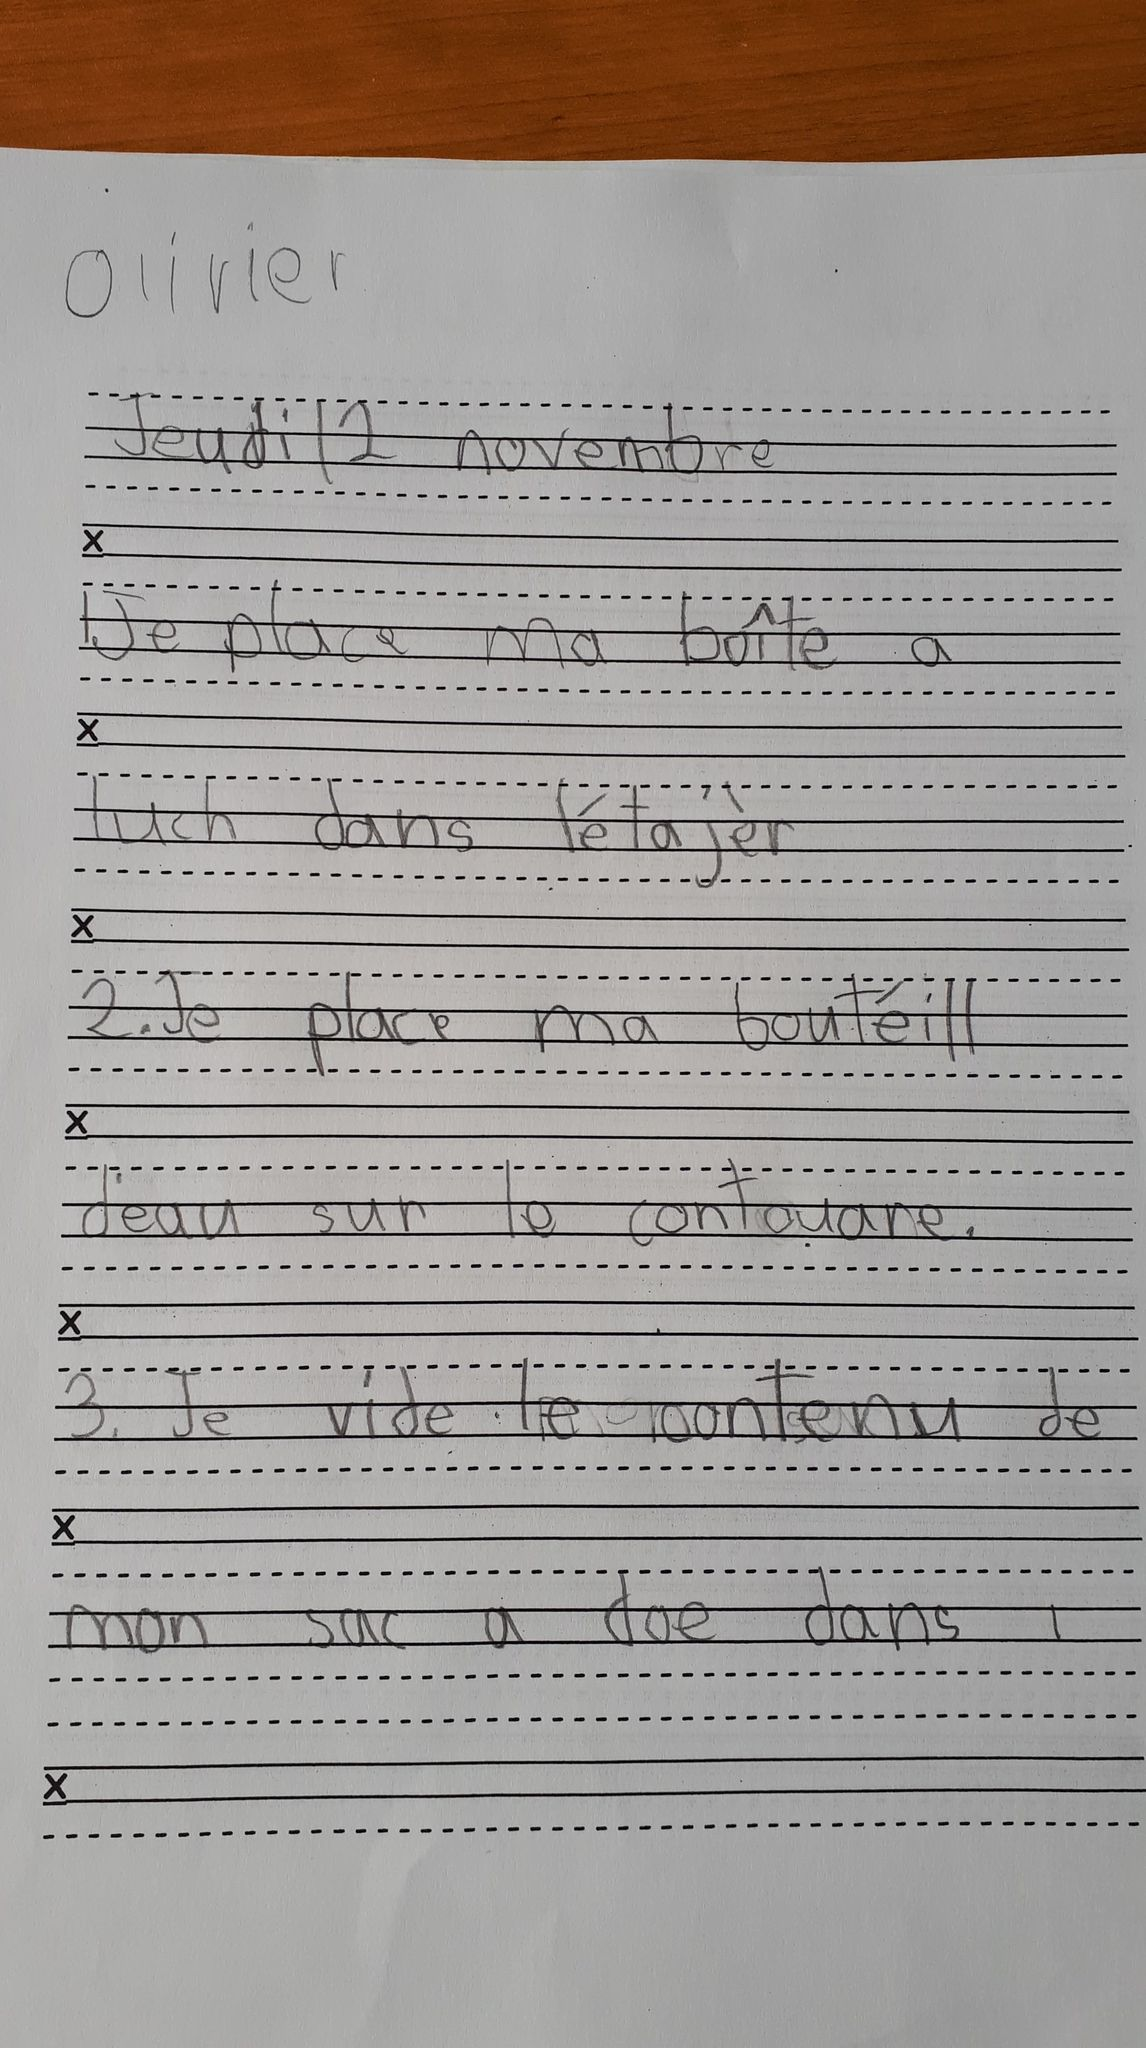 Olivier
Jeudi 12 novembre
x
1.Je place ma boîte a
x
luch dans l'étajèr
x
2.Je place ma boutéill
x
d'eau sur le contouare.
x
3. Je vide le contenu de
x
mon sac a doe dans l
x